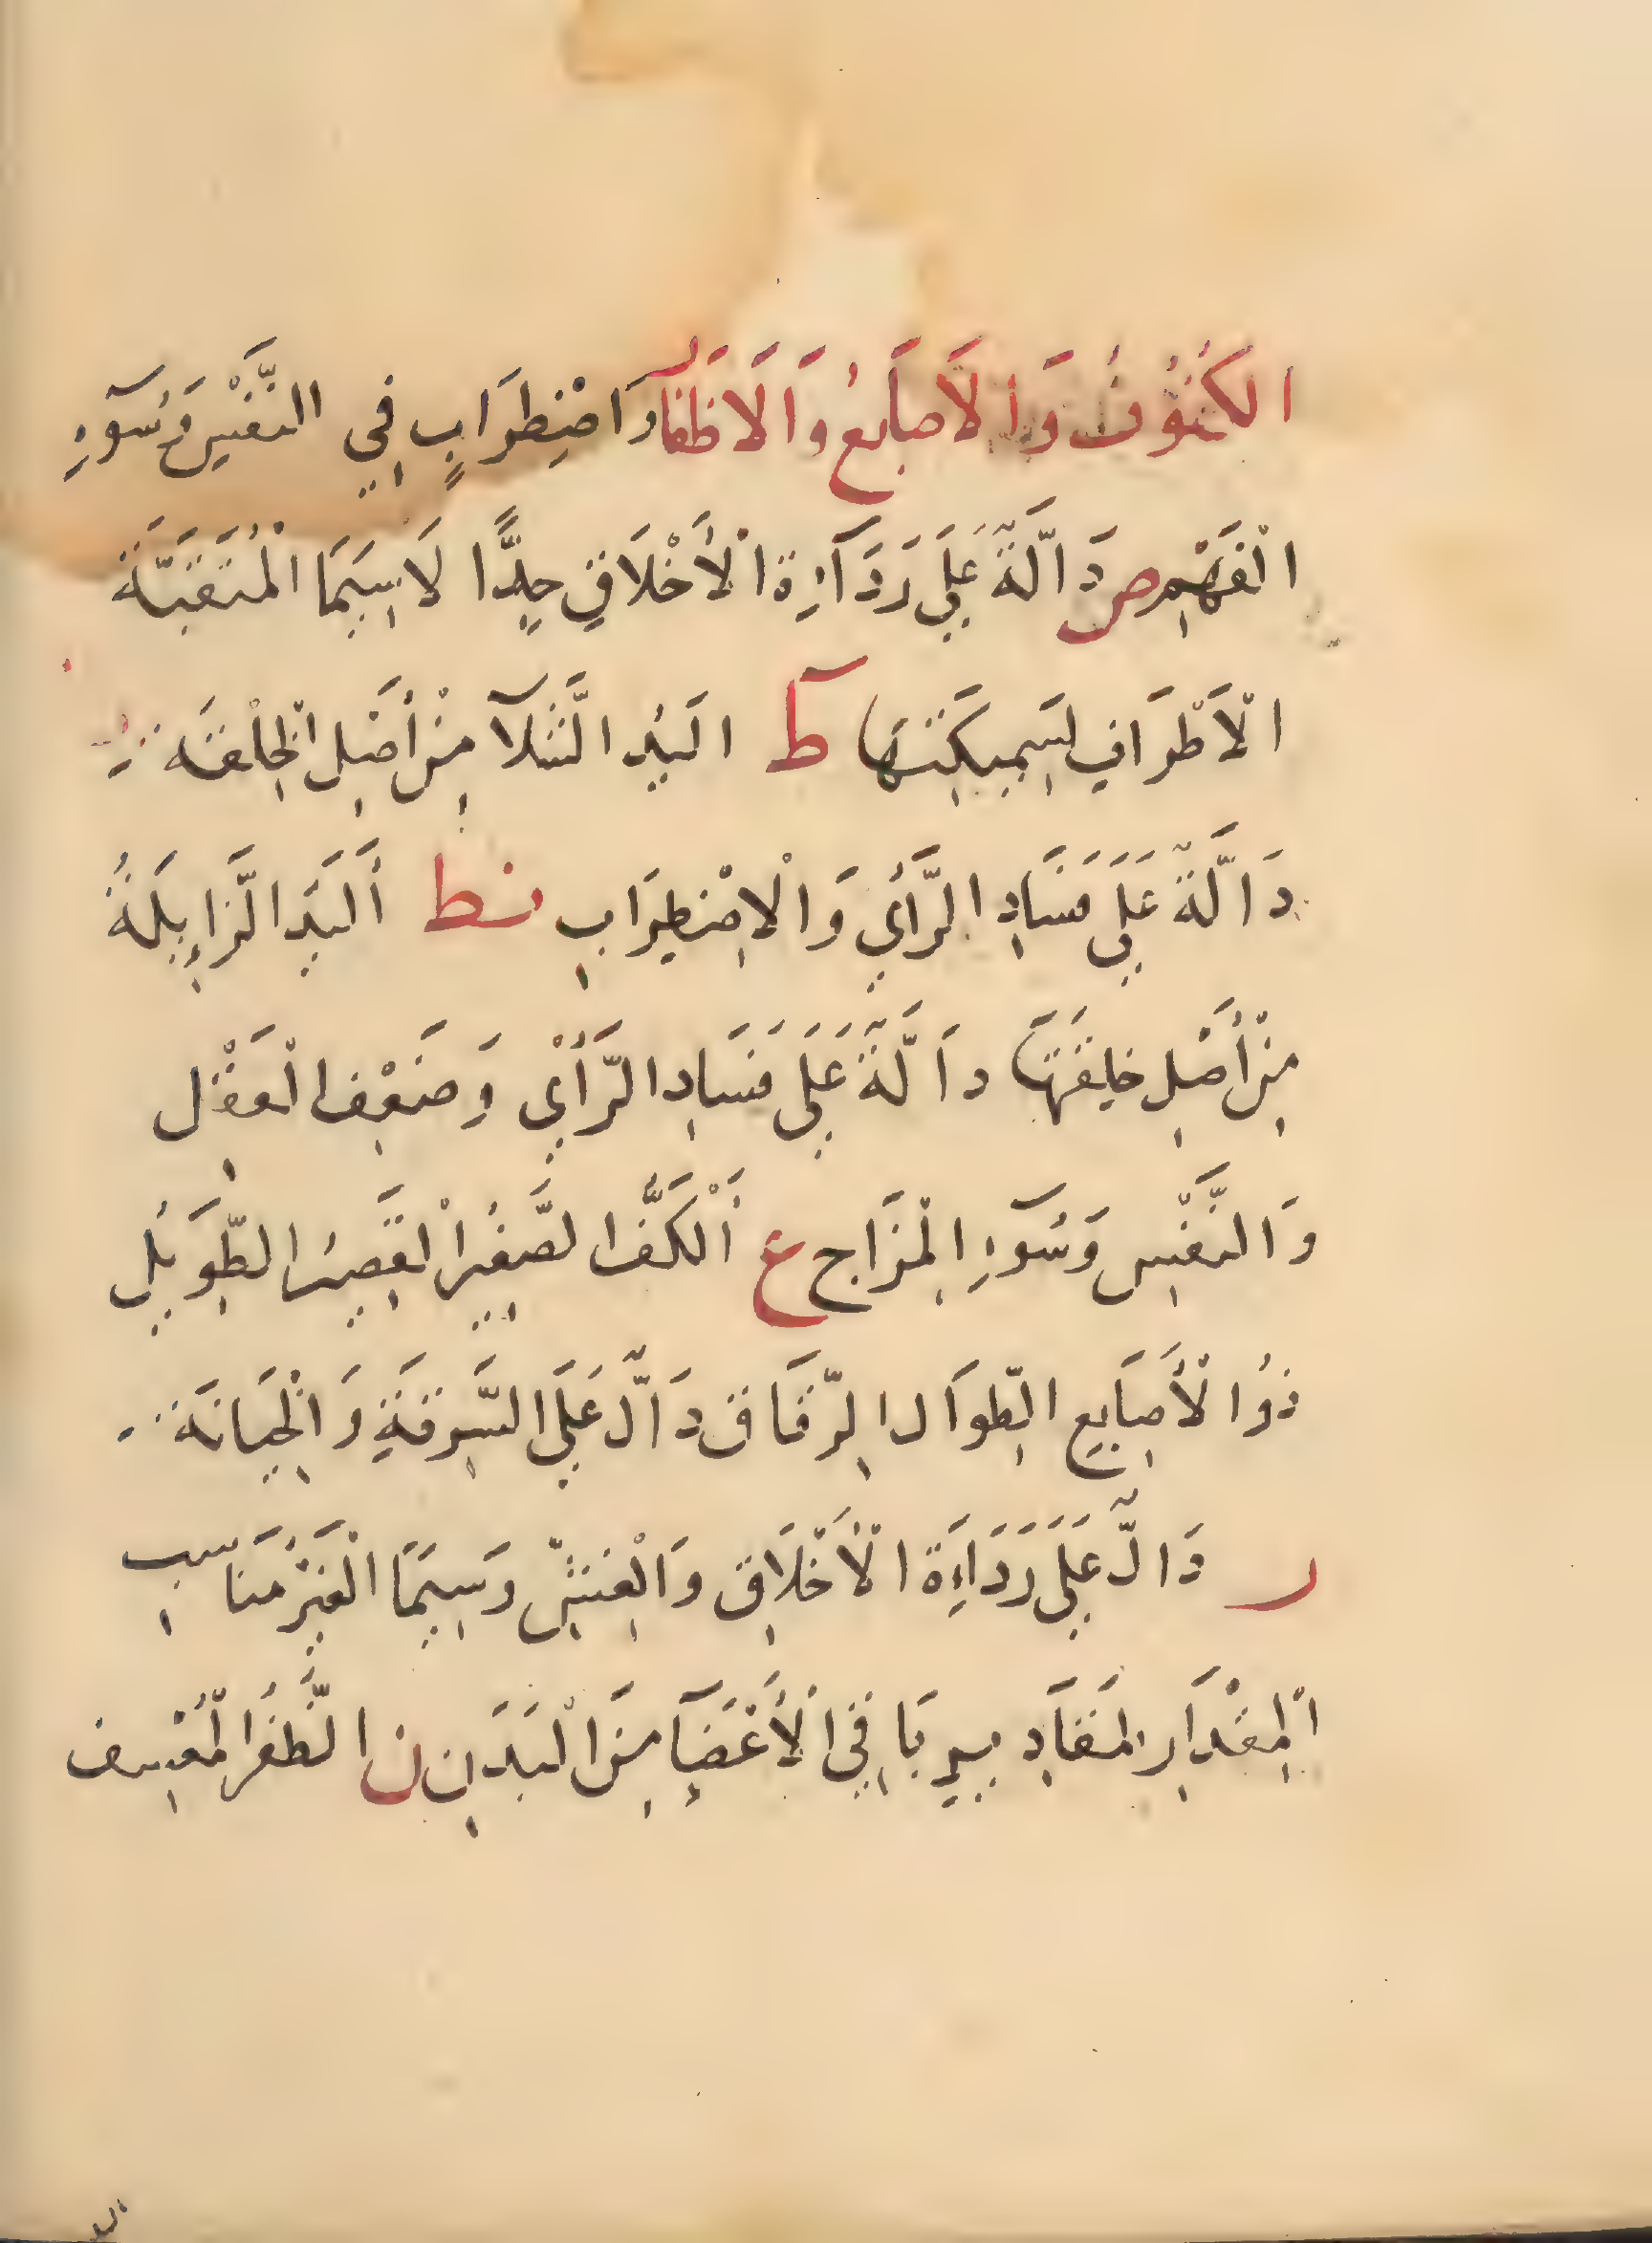 الكُفُوفُ وَالْاَصَابَعُ وَالَاظَفَار وَاضْطِرَابٍ فِي النَّفْسِ وَسُوٓءِ
الْفَهْمِ ص دَالَّةٌ عَلَي رَدَآءِة الْأَخْلَاقِ جِدًّا لَاسِيَمَا الْمُتَقَبَّة
الْاَطْرَافِ ط اليَدُ الشَّلآ مِنْ أَصْلِ الْخِلْقَة
دَالَّةٌ عَلَي فَسَادِ الرَّأيِ وَالْاِضْطِرَابِ نط أَليَدَ الزَّايِلَةُ
مِنْ أَصْلِ خِلقَتَهَا دَالَّةٌ عَلَي فَسَادِ الرَّأْيِ وَضَعْفِ الْعَقْلِ
وَالنَّفْسِ وَسُوٓءِ الْمزَاج ع أَلْكَفُّ الصَّغِيُر الْقَصِيُر الطَّوِيُل
ذُو الْأَصَابِعِ الطِّوَال الرِّقَاق دَالّ عَلَي السَّرِقَةِ وَالْخِيَانَة
ر دَالّ عَلَي رَدَاءَة الْأَخْلَاقِ وَالْغِشِّ وَسِيَمَا الْغَيْرُ مُنَاسِب
الْمِقْدَارِ لِبَاقِي الْأَعْضَآءِ مِنَ الْبَدَنِ ن الظُّفُر
الد